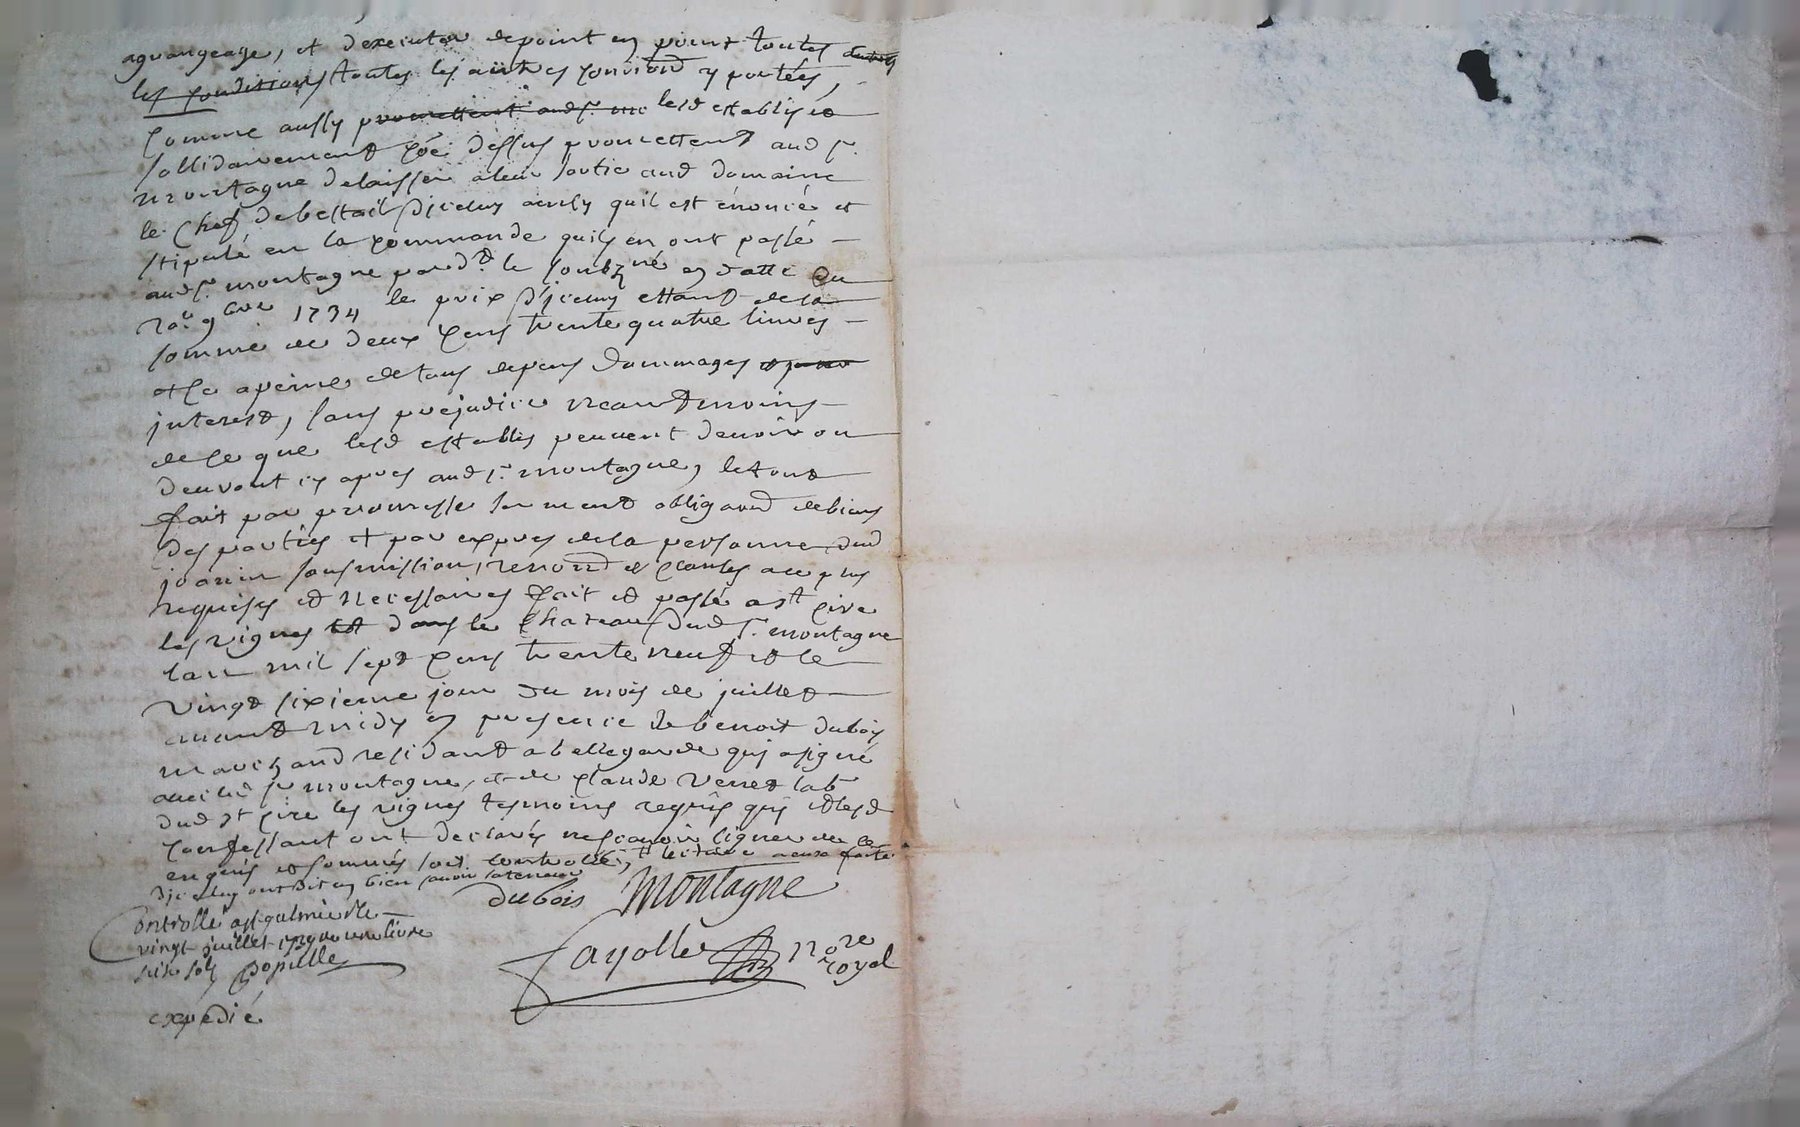 agrangeage, et dexecuter de point en point toutes
les conditions toutes les autres condiond y portées,
comme aussy promettent aud sr lesd establis et
sollidairement coe dessus promettent aud sr
montagne delaisser a leur sortie aud domaine
le chef de bestail d'jceluy ainsy quil est énoncé et
stipulé en la commande quils en ont passé
aud sr montagne pard.t le soubzné en datte du
20e 9bre 1734 le prix d'jceluy estant de la
somme de deux cens trente quatre livres
et ce a peine de tous depens dommages et
interest, sans préjudice neantmoins
de ce que lesd establis peuvent devoir ou
devront cy apres aud sr montagne, le tout
fait par promesse serment obligaond de biens
des parties et par expres de la personne dud
joanin sousmission, renond et clauses
requises et necessaires fait et passé a st cire
les vignes dans le chateau dud sr montagne
lan mil sept cens trente neuf et le
vingt sixieme jour du mois de juillet
avant midy en presence de benoit dubois
marchand residant a bellegarde qui a signé
avec led sr montagne, et de claude verret lab
dud st cire les vignes tesmoins requis qui et lesd
confessant ont declarés ne scavoir signer de ce
enquis et sommés soit controllé, lecture faite
d'jceluy ont dit en bien savoir la teneur
dubois Montagne
Controllé a st galmier le
vingt juillet 1739 une livre
sols Populle
fayolle nore
royal
expedié